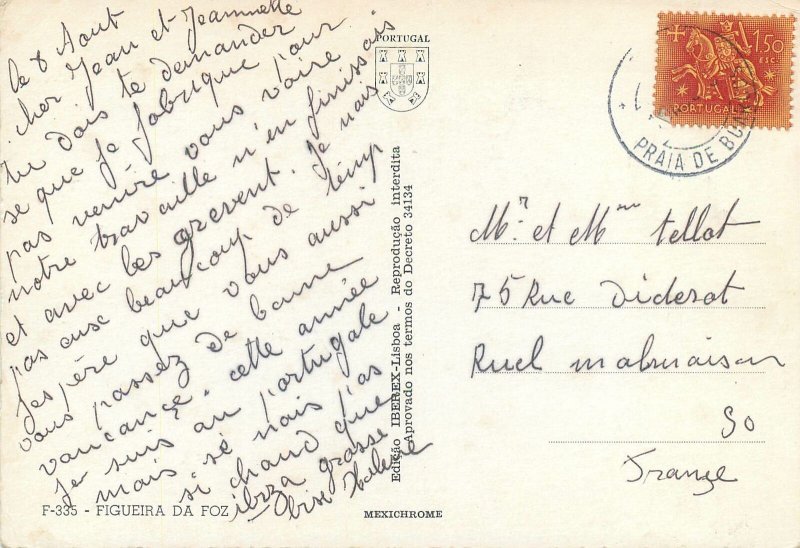 le 8 Aout
cher Jean et Jeannette
tu dois te demander
se que je fabrique pour
pas venire vous voire
notre travaille n'en finissais
et avec les grevent. Je nais
pas eux beaucoup de temp
Jespère que vous aussi
vous passez de bonne
vancance. cette année
Je suis au portugale
mais sé nais pas
si chaud que
ibiza grosse
bise
F-335 - FIGUEIRA DA FOZ
PORTUGAL
Edição IBEREX-Lisboa - Reprodução interdita
Aprovado nos termos do Decreto 34134
MEXICHROME
1$50
ESC.
PORTUGAL
PRAIA DE
Mr et Mme tellot
75 Rue Diderot
Ruel malmaison
90
Françe